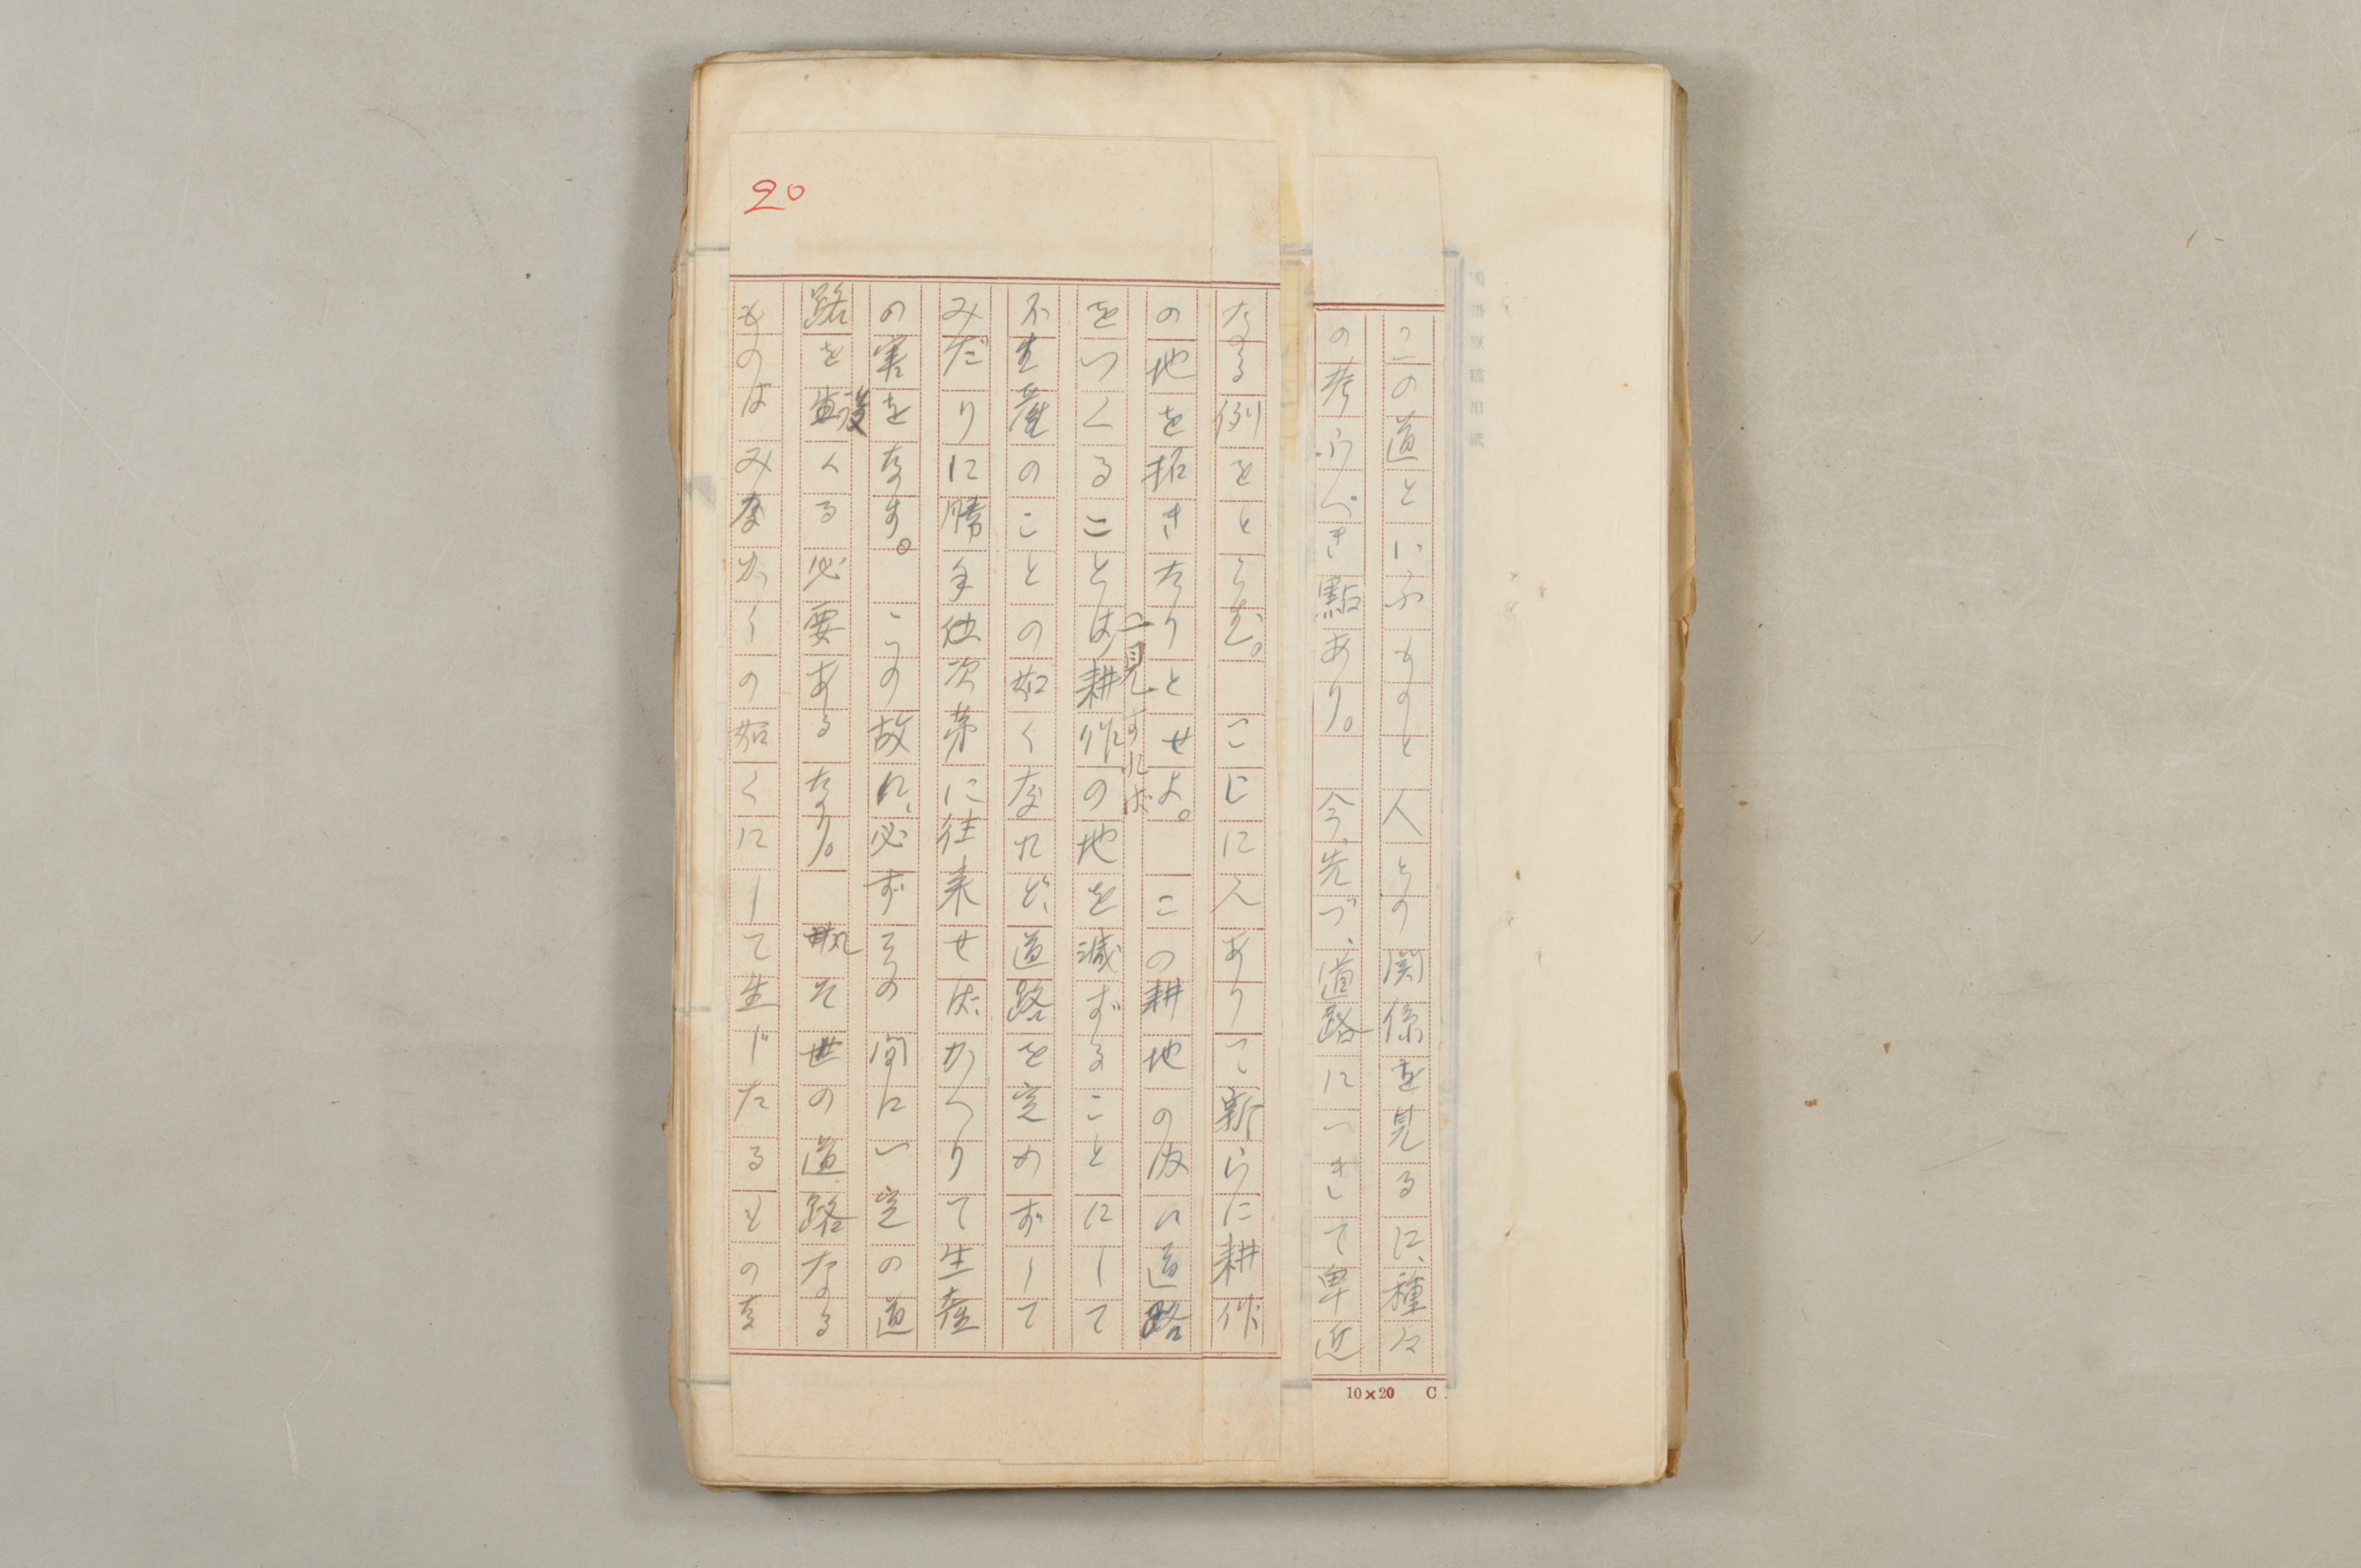 この道といふものと人との関係を見るに、種々
の考ふべき點あり。　今、先づ、道路につきて卑近
なる例をとらむ。　こゝに人ありて新らに耕作
の地を拓きたりとせよ。　この耕地の内に道路
をつくることは一見すれば耕作の地を減ずることにして
不生産のことの如くなれど、道路を定めずして
みだりに勝手次第に往来せば、かへりて生産
の害をなす。　この故に、必ずその間に一定の道
路を設くる必要あるなり。　凡そ世の道路なる
ものはみなかくの如くにして生じたるものな
20
10×20　C